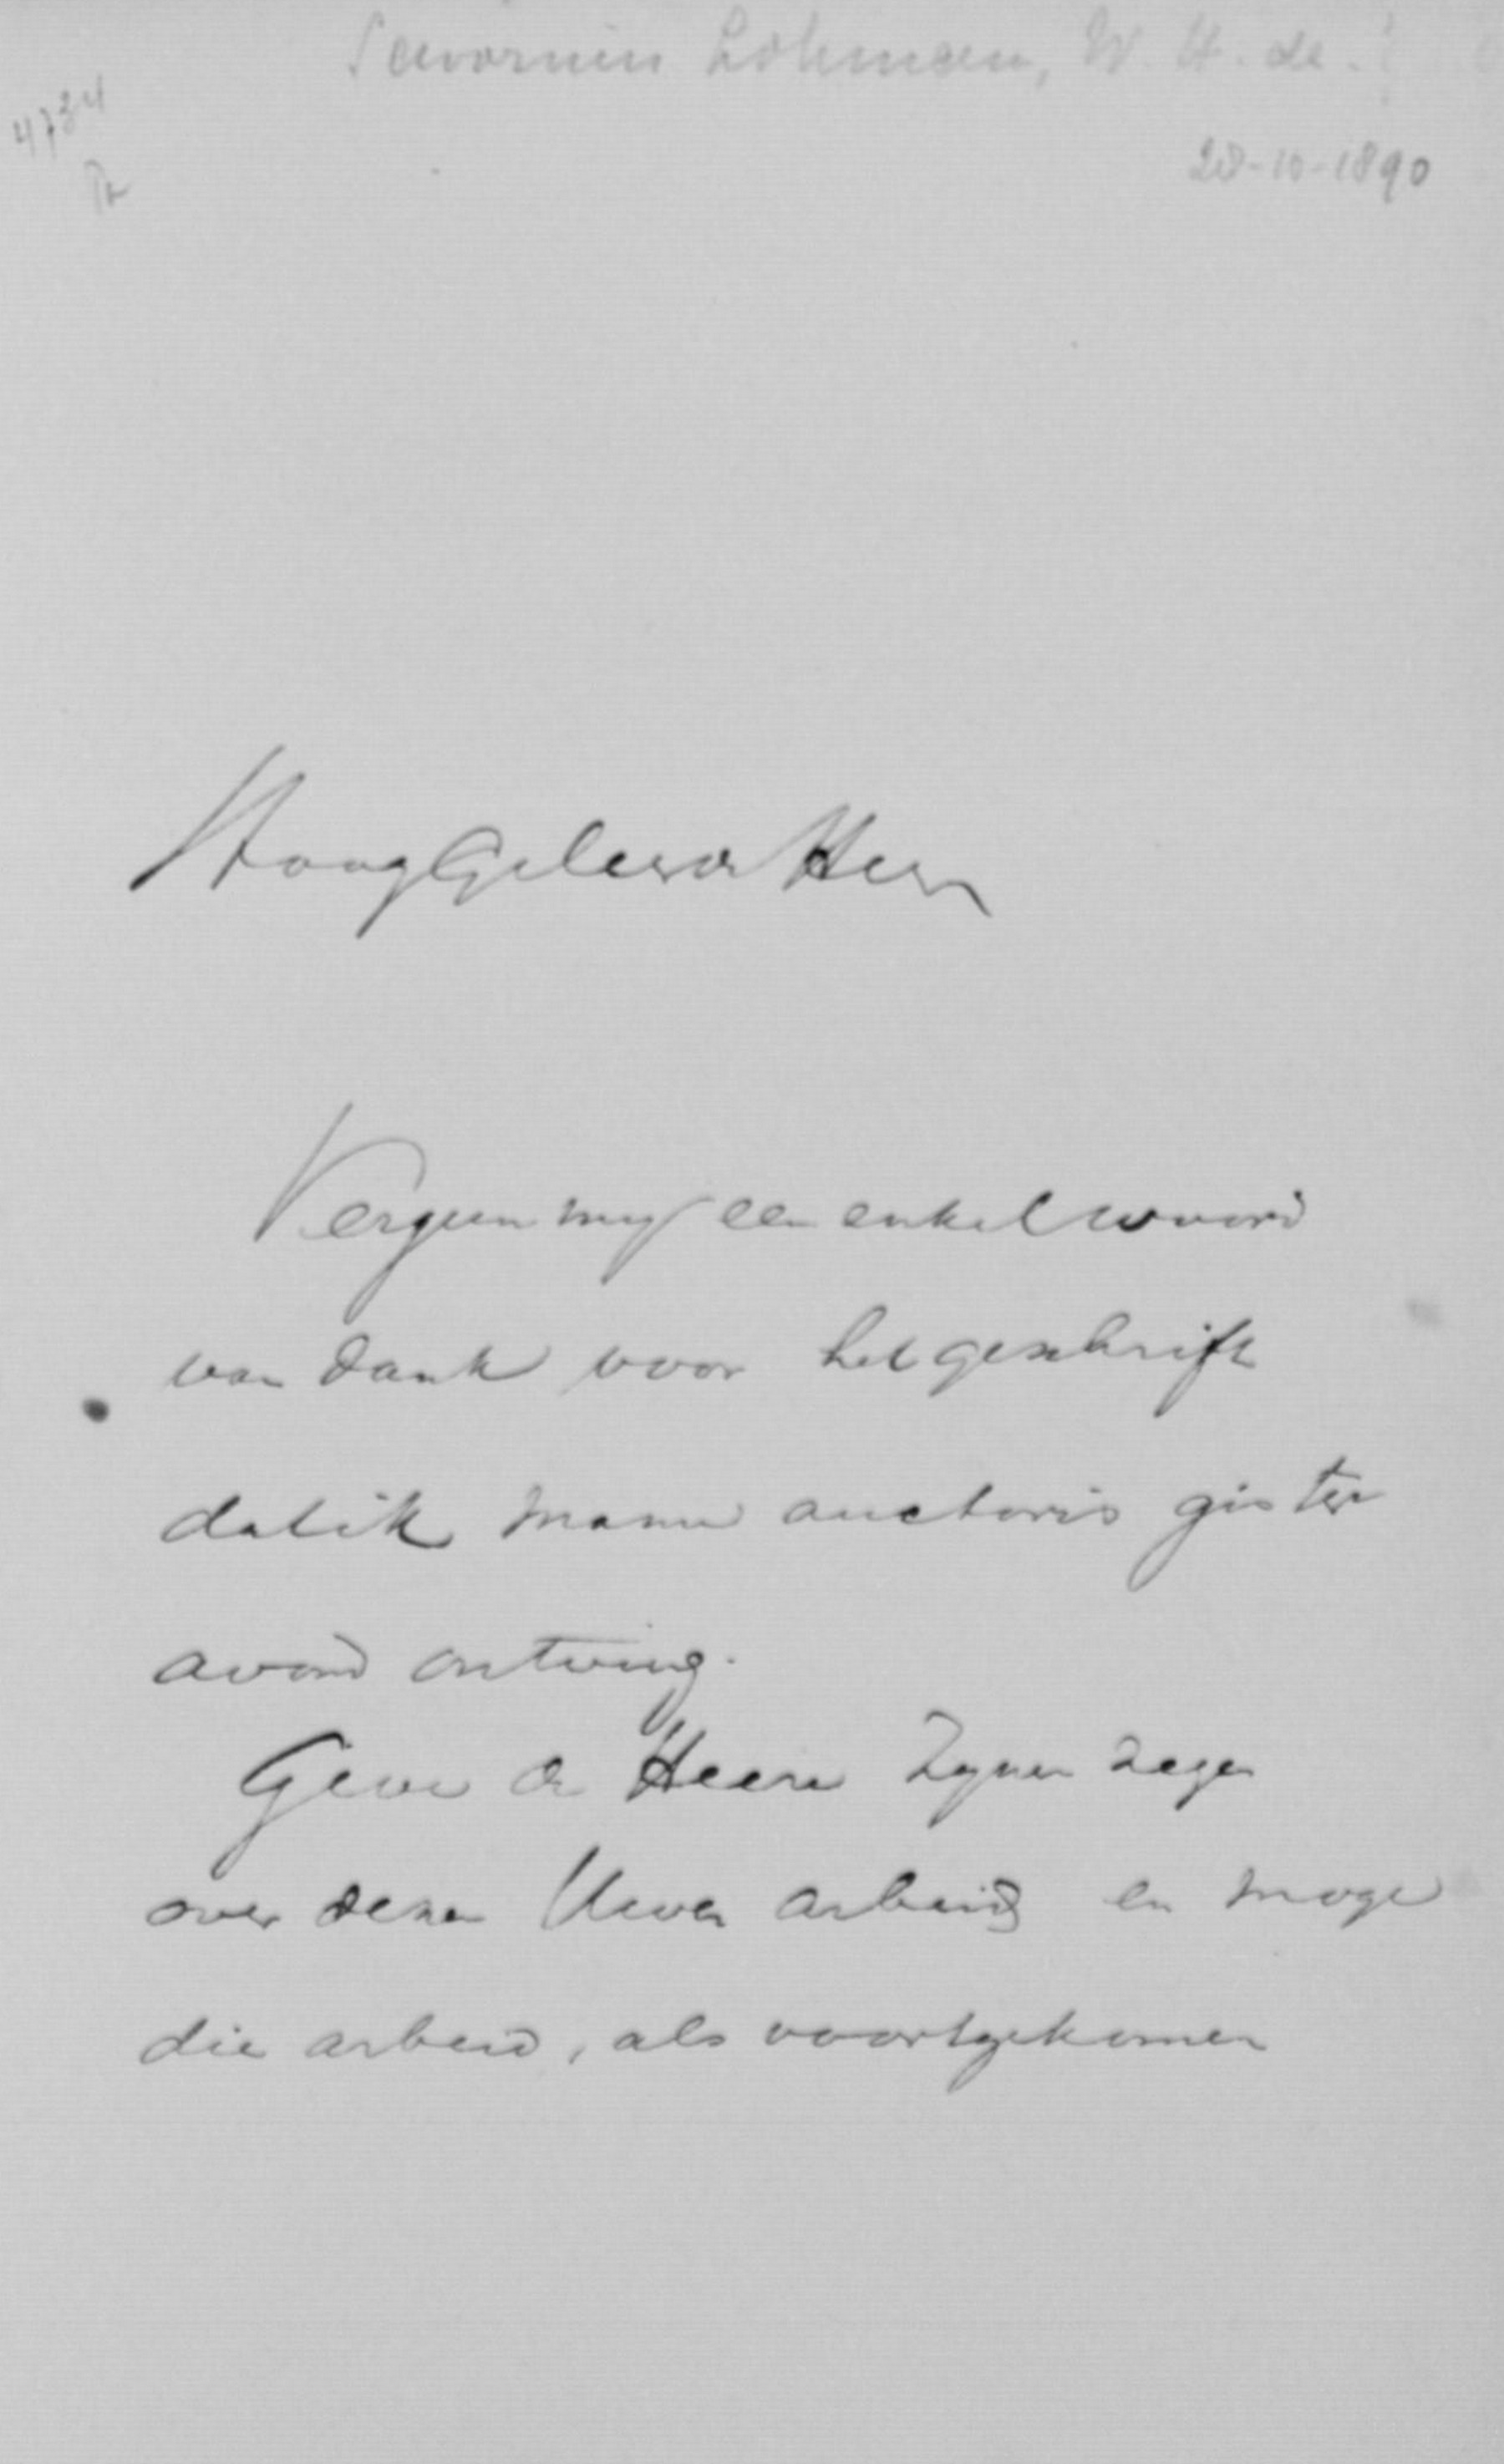 Savornin Lohman, W. H. de.
4734
28-10-1890
HoogGeleerde Heer
Vergun mij een enkel woord
van dank voor het geschrift
dat ik manu auctoris gister
avond ontving.
Geve de Heere Zynen zegen
over dezen Uwen arbeid en moge
die arbeid, als voortgekomen